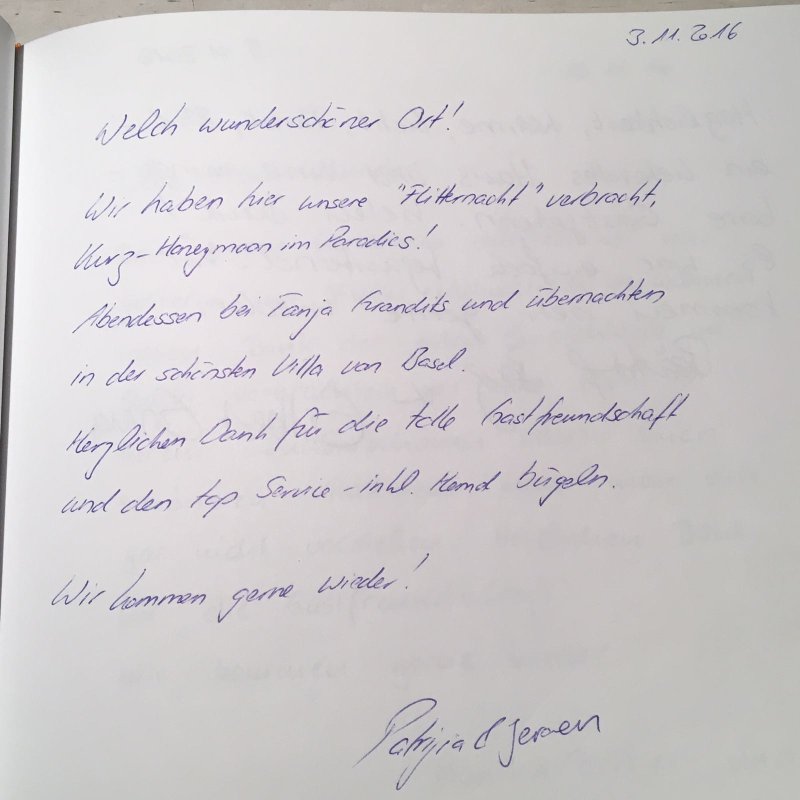 3.11.2016
Welch wunderschöner Ort!
Wir haben hier unsere "Flitternacht" verbracht,
Kurz-Honeymoon im Paradies!
Abendessen bei Tanja Grandits und übernachten
in der schönsten Villa von Basel.
Herzlichen Dank für die tolle Gastfreundschaft
und den top Service - inkl. Hemd bügeln.
Wir kommen gerne wieder!
Patrizia & Jeroen